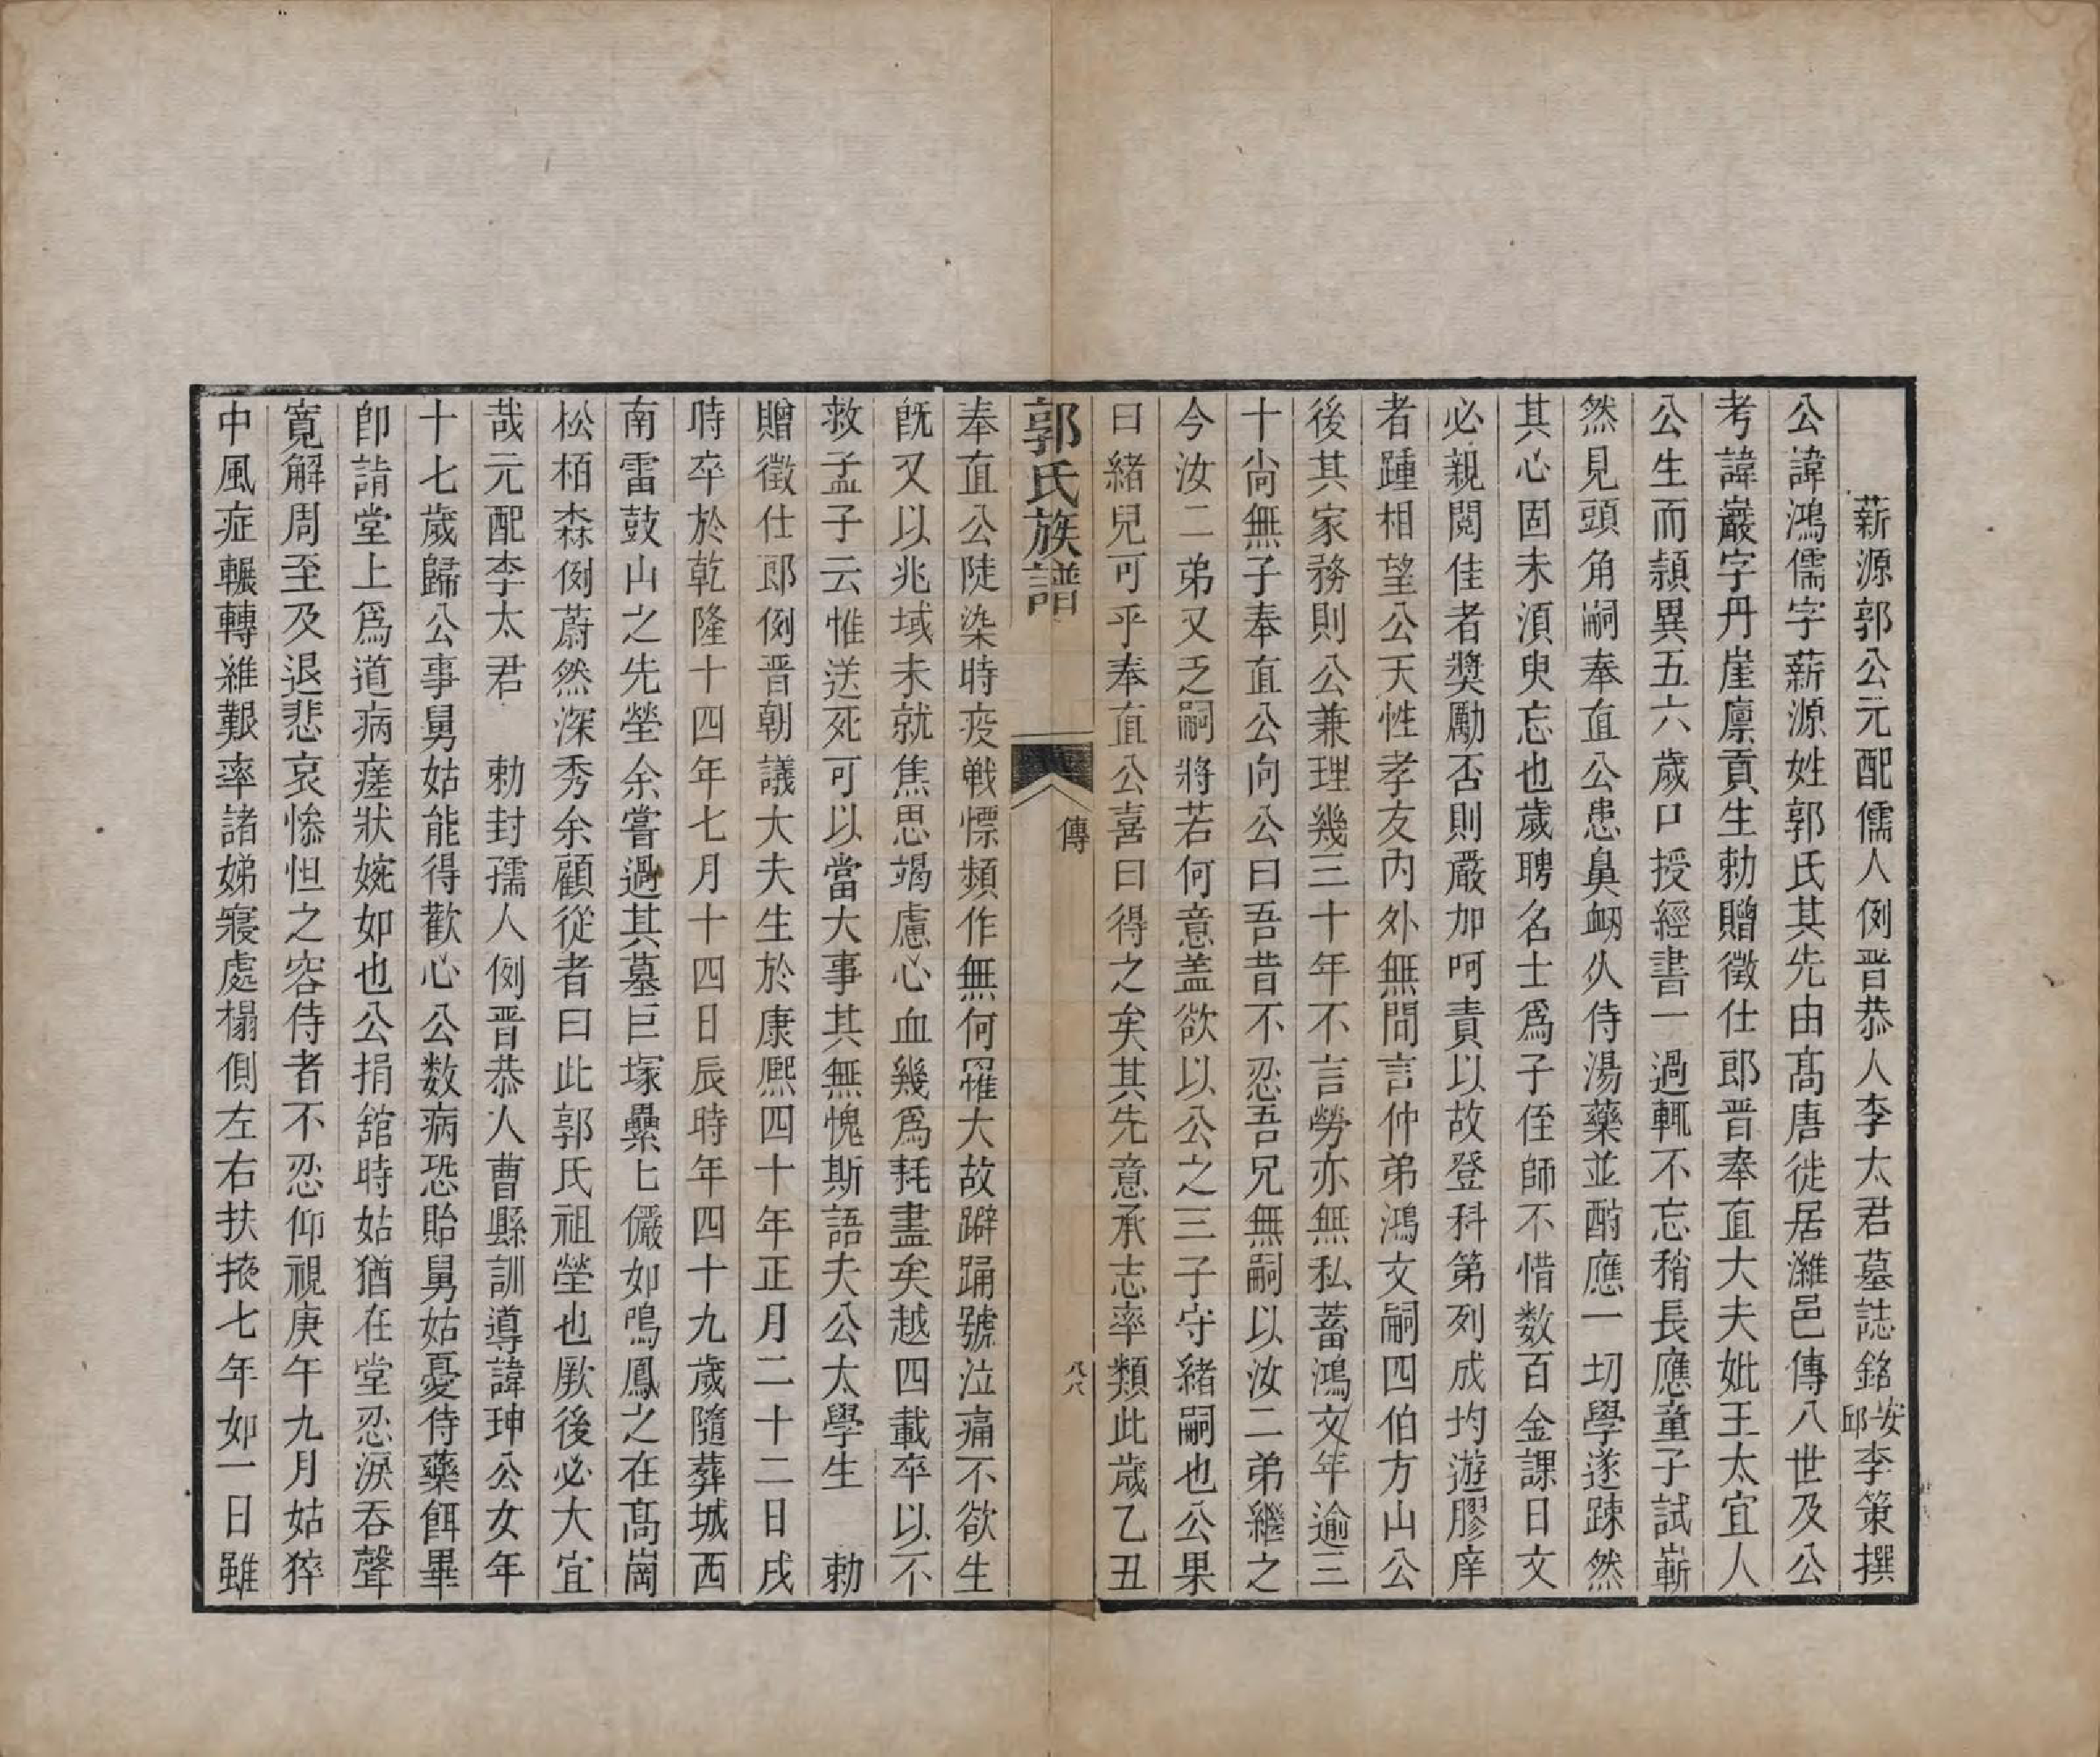 薪源郭公元配儒人例晋恭人李太君墓誌銘安邱李策撰
公諱鴻儒字薪源姓郭氏其先由髙唐徙居濰邑傳八世及公
考諱巖字丹崖廪貢生勅贈徵仕郎晋奉直大夫妣王太宜人
公生而頴異五六歲口授經書一過輒不忘稍長應童子試嶄
然見頭角嗣奉直公患鼻衂久侍湯藥並酧應一切學遂踈然
其心固未湏臾忘也歲聘名士爲子侄師不惜数百金課日文
必親閱佳者奬勵否則嚴加呵責以故登科第列成均遊膠庠
者踵相望公天性孝友内外無間言仲弟鴻文嗣四伯方山公
後其家務則公兼理幾三十年不言勞亦無私蓄鴻文年逾三
十尙無子奉直公向公曰吾昔不忍吾兄無嗣以汝二弟繼之
今汝二弟又乏嗣將若何意盖欲以公之三子守緒嗣也公果
曰緒兒可乎奉直公喜曰得之矣其先意承志率類此歲乙丑
郭氏族譜
傳
八六
奉直公陡染時疫戰慄頻作無何罹大故躃踊號泣痛不欲生
旣又以兆域未就焦思竭慮心血幾爲耗盡矣越四載卒以不
救孟子云惟送死可以當大事其無愧斯語夫公太學生　勅
贈徵仕郎例晋朝議大夫生於康熈四十年正月二十二日戌
時卒於乾隆十四年七月十四日辰時年四十九歲隨葬城西
南雷鼓山之先塋余嘗過其墓巨塚纍匕儼如鳴鳳之在髙崗
松栢森例蔚然深秀余顧從者曰此郭氏祖塋也厥後必大宜
哉元配李太君　勅封孺人例晋恭人曹縣訓導諱珅公女年
十七歲歸公事舅姑能得歡心公数病恐貽舅姑憂侍藥餌畢
卽請堂上爲道病瘥狀婉如也公捐舘時姑猶在堂忍淚吞聲
寬解周至及退悲哀慘怛之容侍者不忍仰視庚午九月姑猝
中風症輾轉維艱率諸娣寢處榻側左右扶掖七年如一日雖